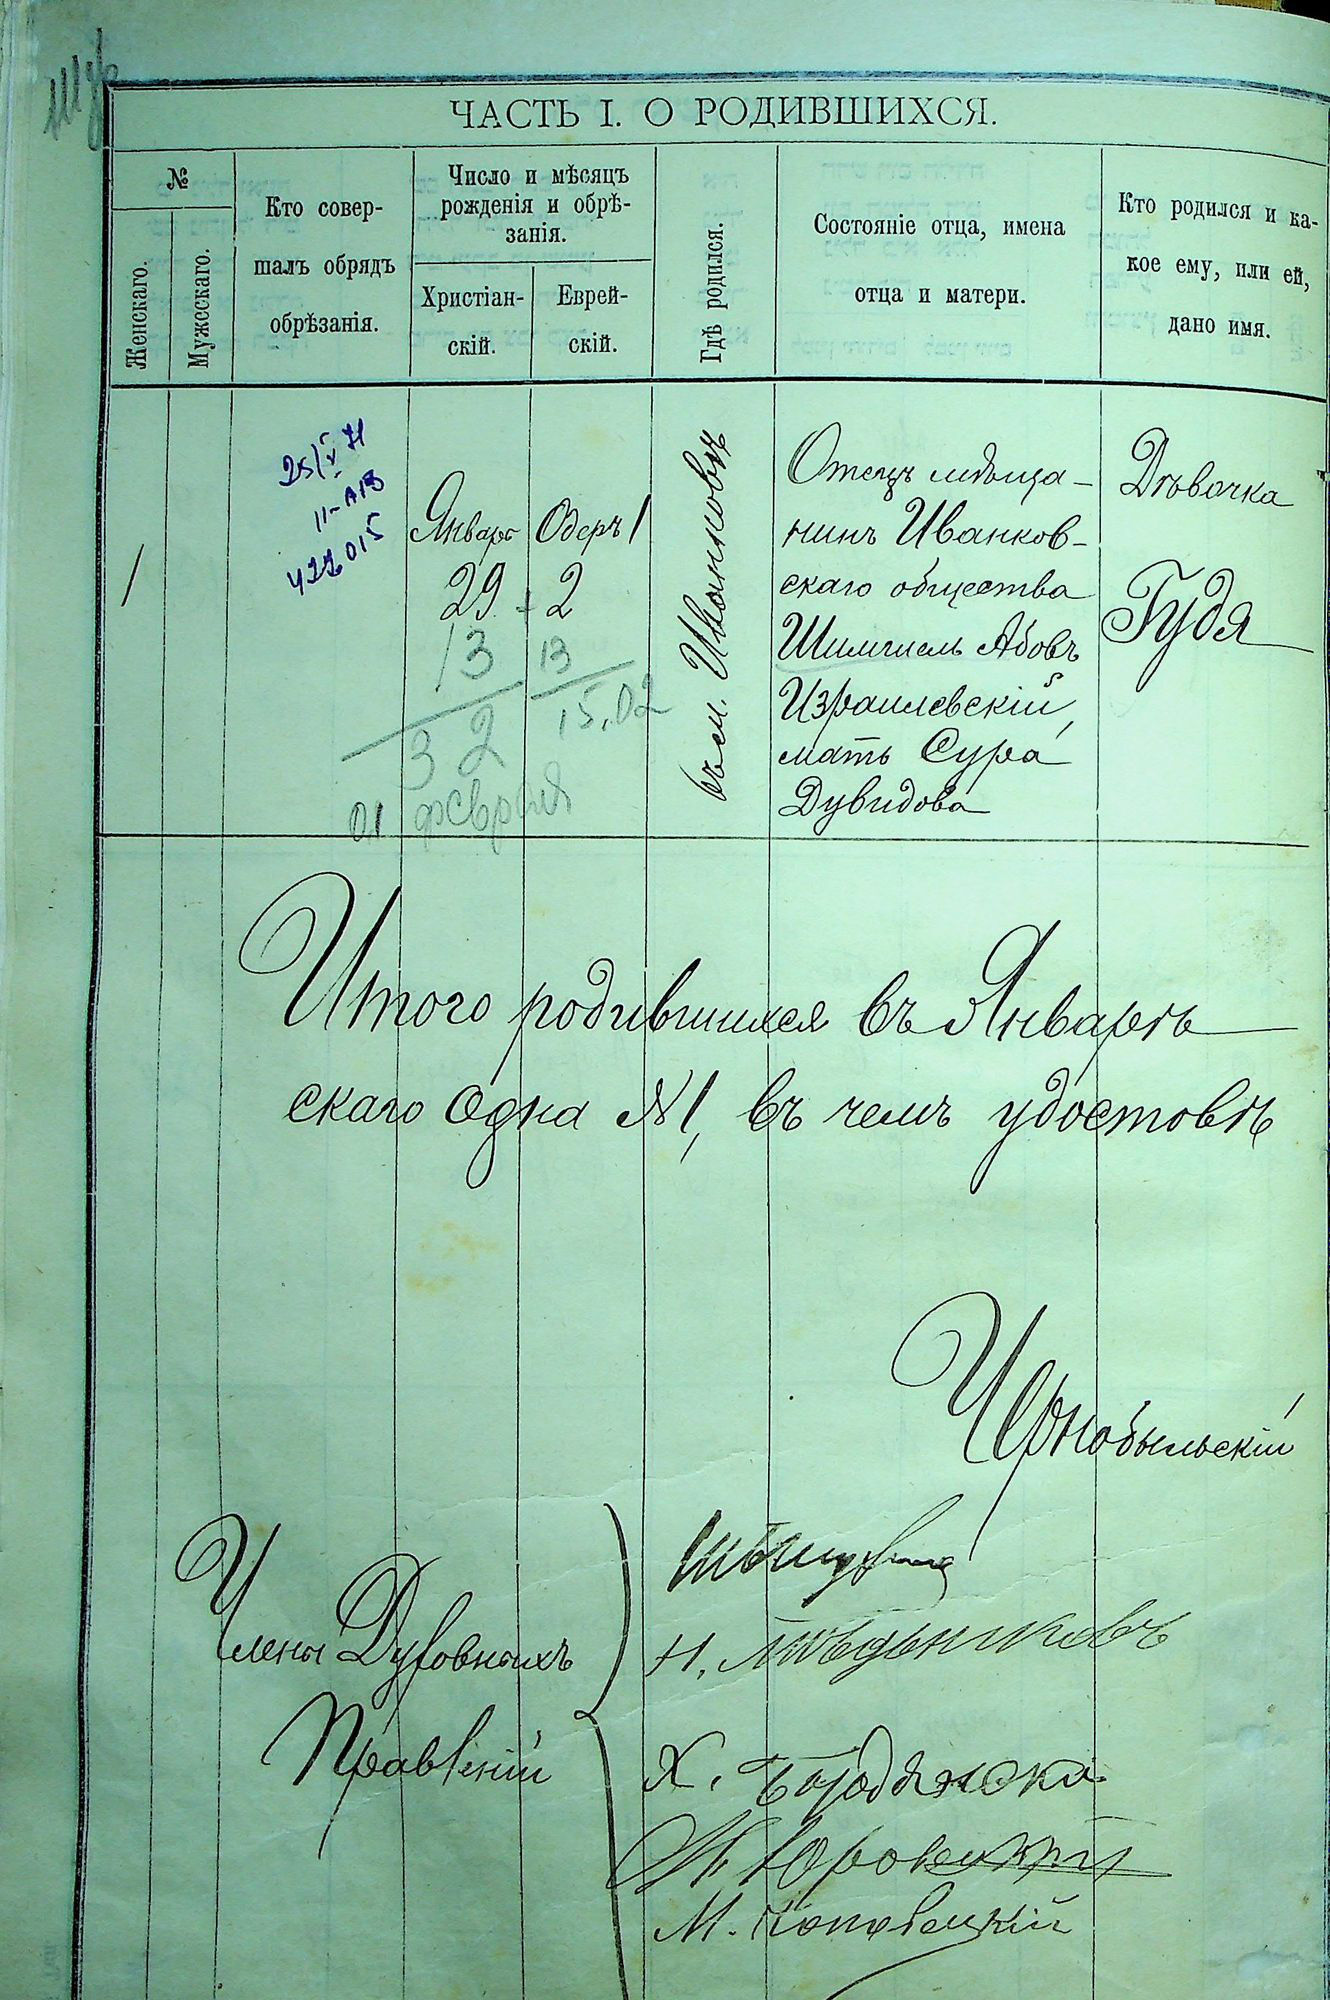 ЧАСТЬ I. О РОДИВШИХСЯ.
№
Женскаго.
Мужескаго.
Кто совер-
шалъ обрядъ
обрѣзанія.
Число и мѣсяцъ
рожденія и обрѣ-
занія.
Христіан-
скій.
Еврей-
скій.
Гдѣ родился.
Состояніе отца, имена
отца и матери.
Кто родился и ка-
кое ему, или ей,
дано имя.
1
II-АВ
422015
Январь
29
Одеръ 1
2
13
32
01 февраля
13
15.02
въ м. Иванковъ
Отецъ мѣща-
нинъ Иванков-
скаго общества
Шимшель Абовъ
Израилевскій,
мать Сура
Дувидова
Дѣвочка
Гудя
Итого родившихся въ Январѣ
скаго одна №1, въ чемъ удостовѣ
Чернобыльскій
Члены Духовныхъ
Правленій
Х. Бородянска
М. Юровецкій
М.